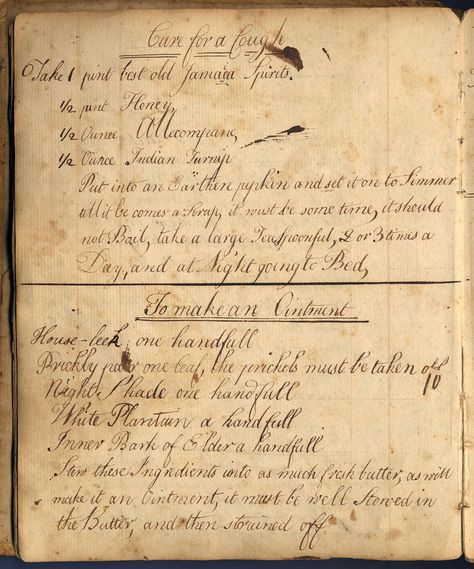 Cure for a Cough
Take 1 pint best old Jamaca Spirits.
1/2 pint Honey,
1/2 Ounce Allecompane,
1/2 Ounce Indian Turnip
Put into an Earthen pipkin and set it on to Simmer
till it be comes a Sirap, it must be some time, it should
not Boil, take a large Teaspoonful, 2 or 3 times a
Day, and at Night going to Bed,
To make an Ointment
House-leek one handfull
Prickly pair one leaf, the prickels must be taken off
Night Shade one handfull 10
White Plantain a handfull
Inner Bark of Elder a handfull
Stew these Ingredients unto as much fresh butter, as will
make it an Ointment, it must be well Stewed in
the Butter, and then strained off